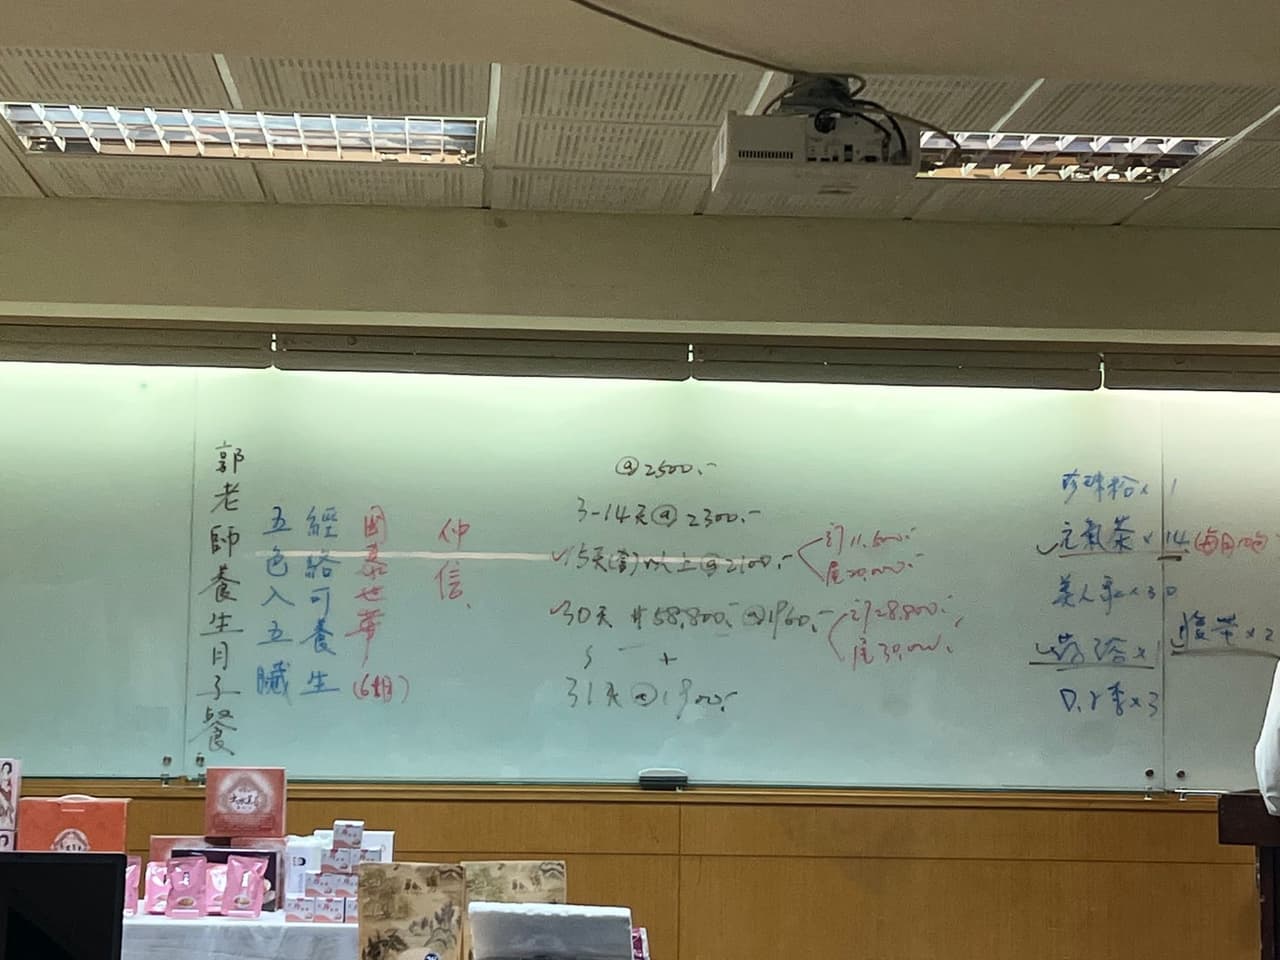 郭老師養生月子餐
五色入五臟
經絡可養生
國泰世華
(6期)
仲信
@2500.-
3-14天@2300.-
✓15天(含)以上@2100.-
訂11,500.-
尾20,000.-
✓30天 #58,800.- @1960.-
訂28,800.-
尾30,000.-
31天@1900.-
珍珠粉×1
✓元氣茶×14(每日1包
美人飲×30
✓藥浴×1
腹帶×2